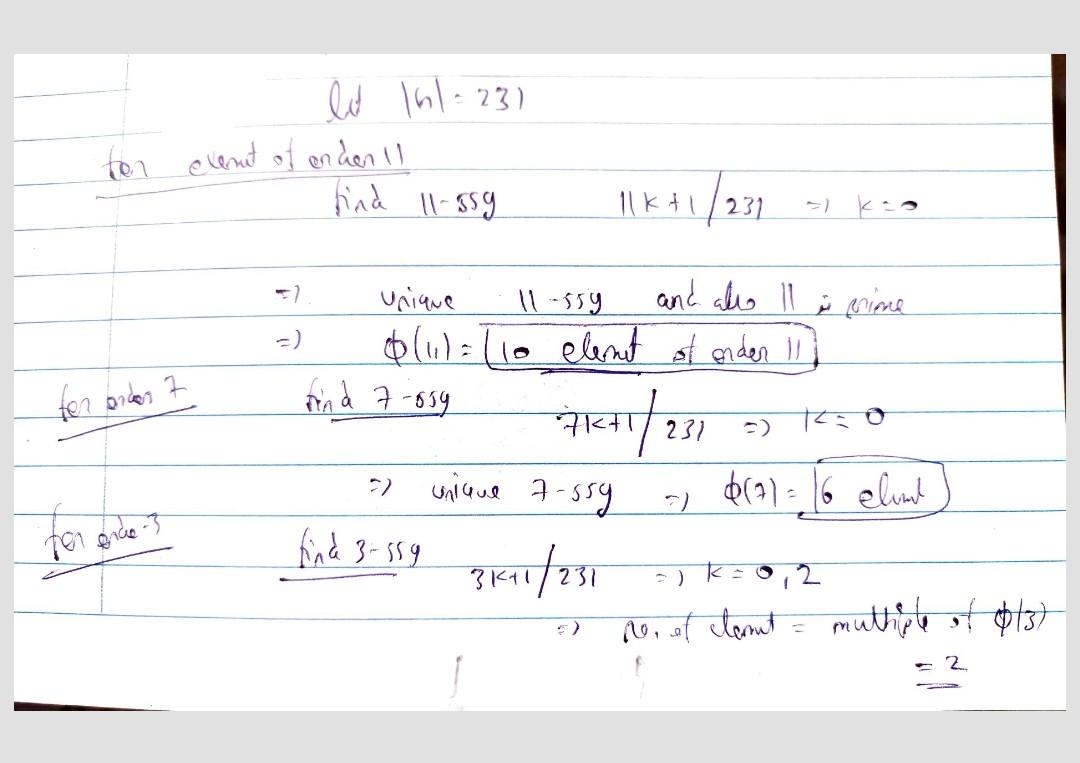 let |G| = 231
for element of order 11
find 11-ssg 11k+1/231 => k=0
=> unique 11-ssg and also 11 is prime
=> ϕ(11) = 10 element of order 11
for order 7 find 7-ssg
7k+1/231 => k=0
=> unique 7-ssg => ϕ(7) = 6 elemt
for order-3 find 3-ssg
3k+1/231 => k=0,2
=> no. of elemnt = multiple of ϕ(3)
= 2